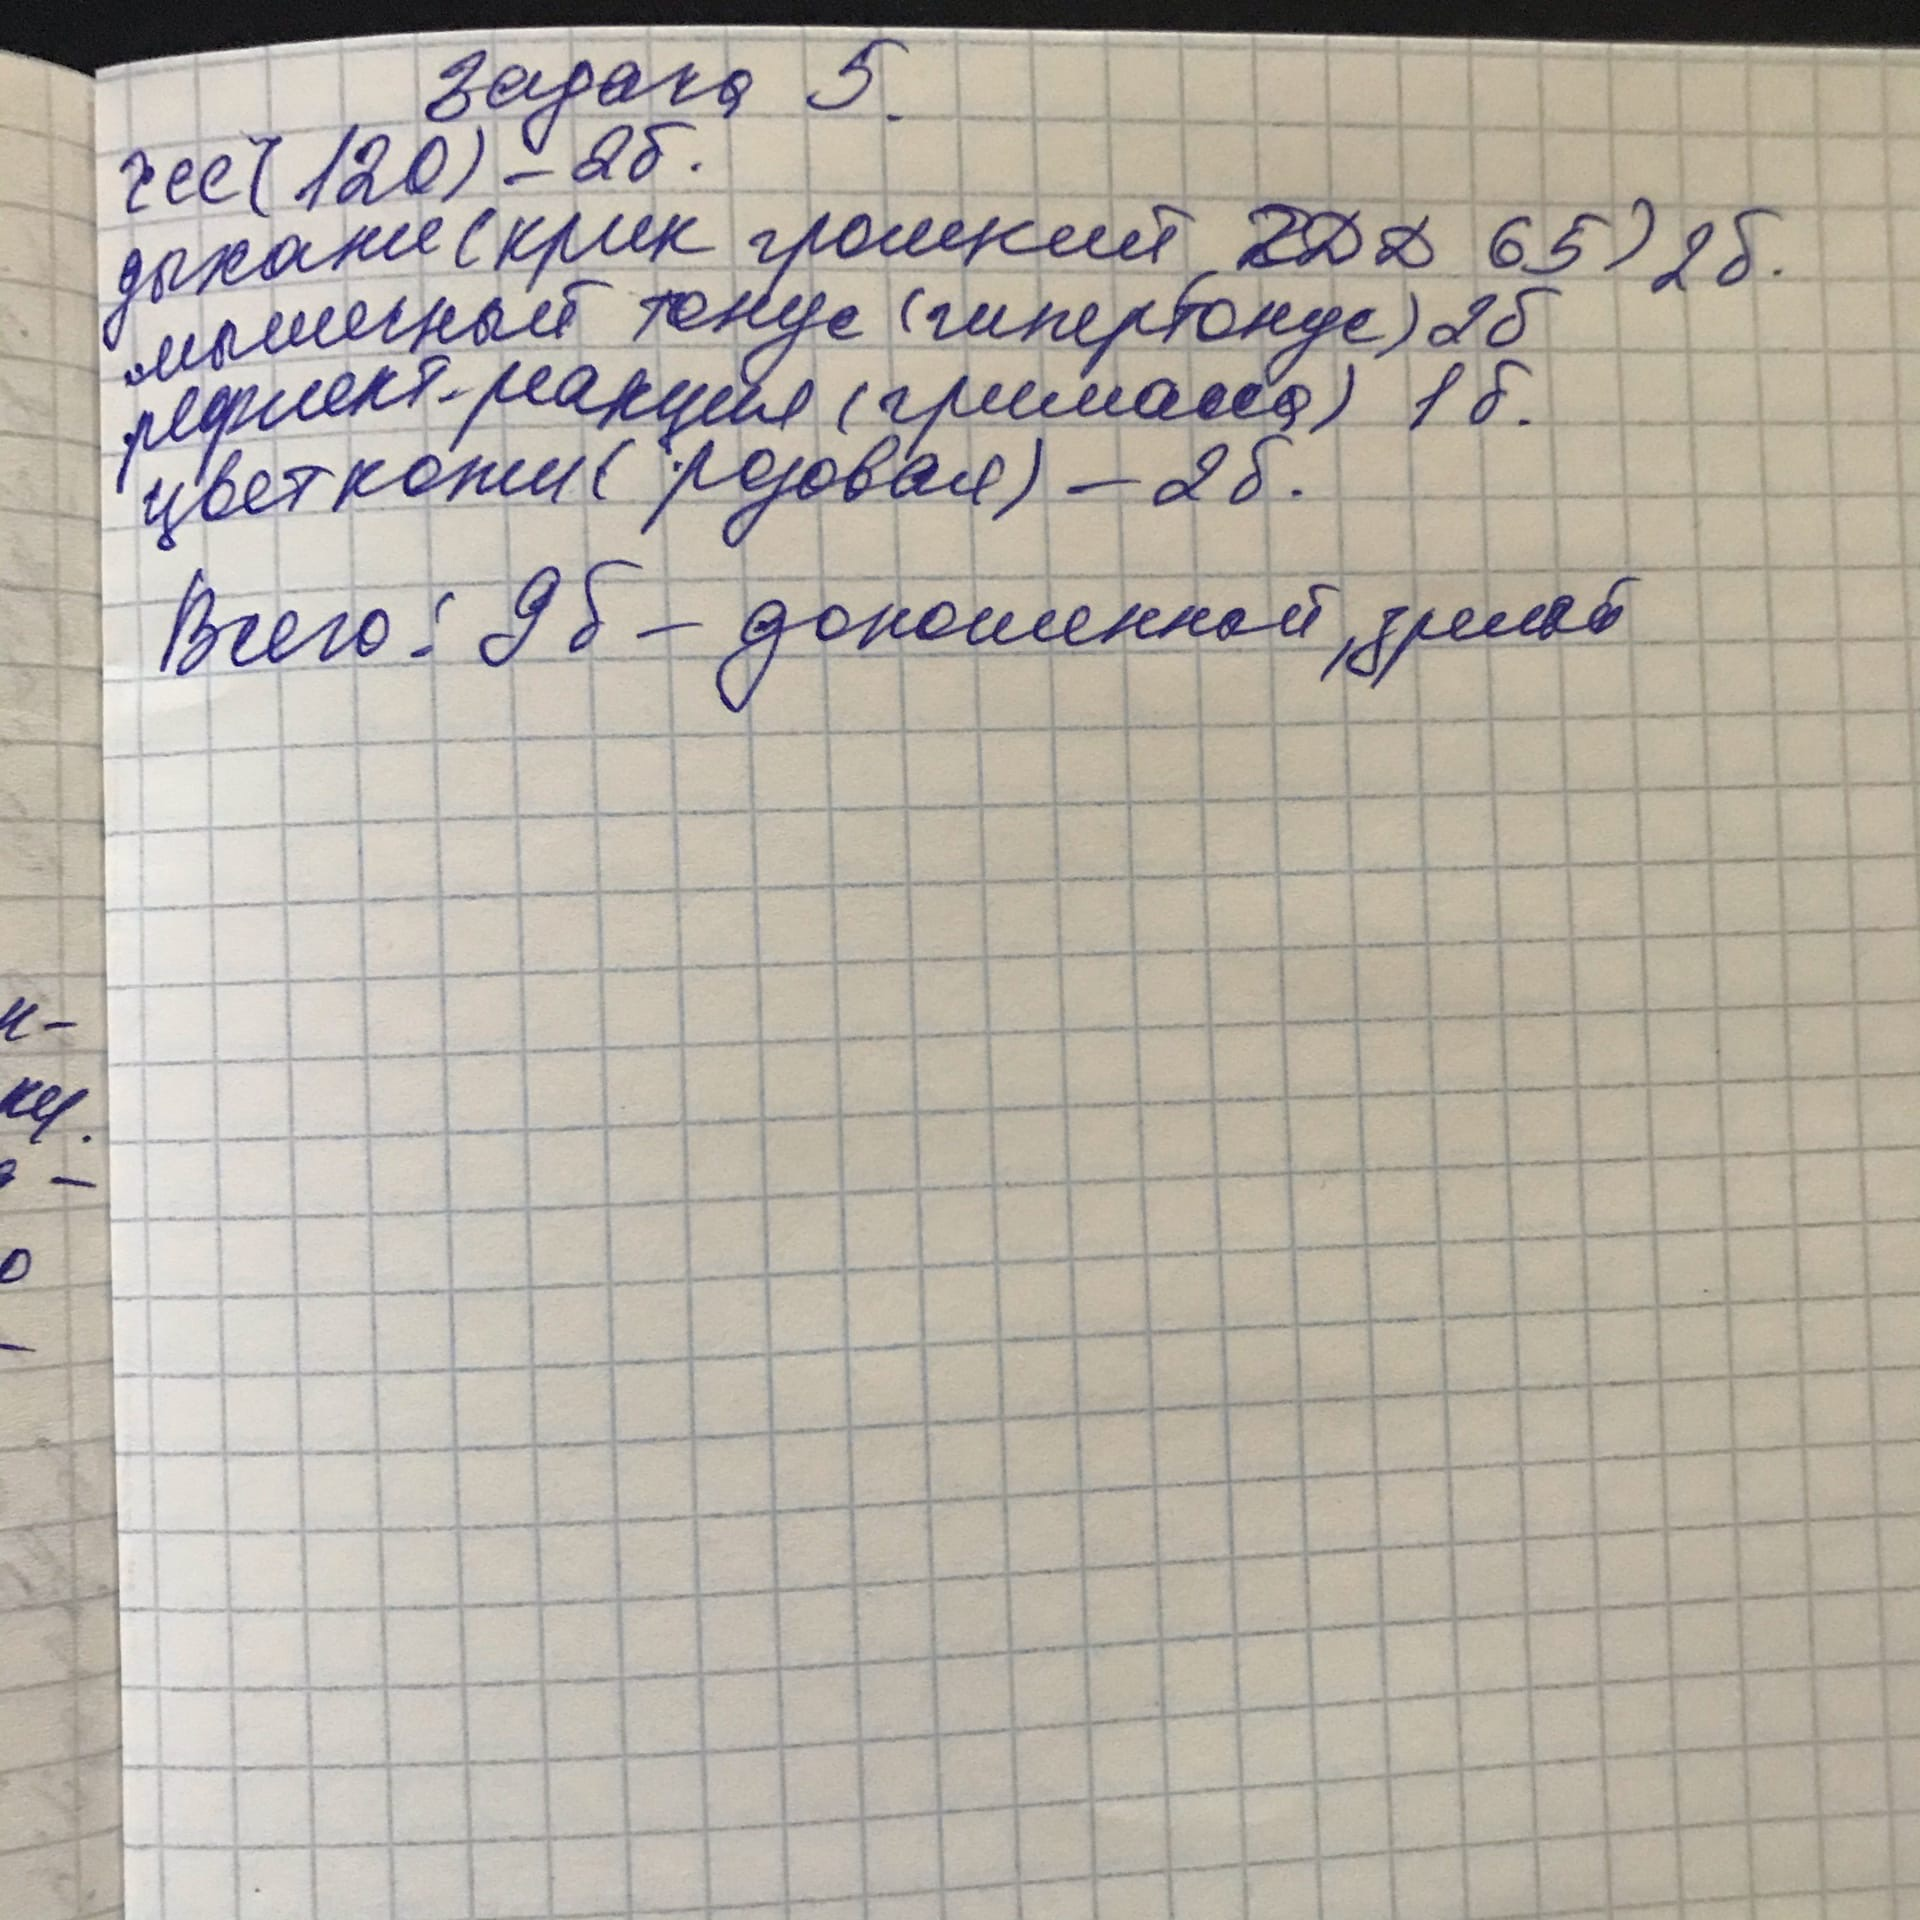 Задача 5.
ЧСС (120) – 2б.
дыхание (крик громкий, ЧДД 65) 2б.
мышечный тонус (гипертонус) 2б
рефлект-реакция (гримаса) 1б.
цвет кожи (розовая) – 2б.
Всего: 9б – доношенный, зрелый
н-
ку.
–
о
–